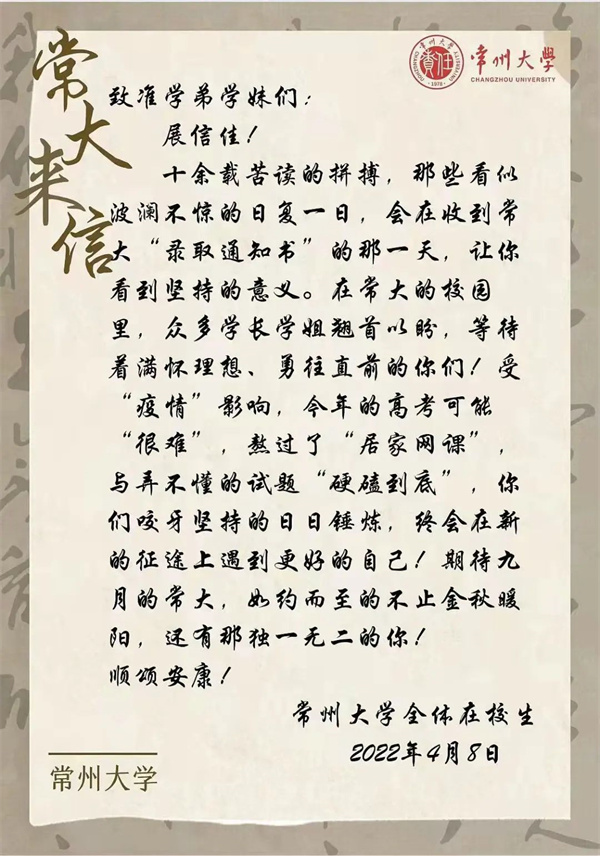 常大来信
常州大学
CHANGZHOU UNIVERSITY
常州大学
CHANGZHOU UNIVERSITY
责任
1978
致准学弟学妹们：
展信佳！
十余载苦读的拼搏，那些看似
波澜不惊的日复一日，会在收到常
大“录取通知书”的那一天，让你
看到坚持的意义。在常大的校园
里，众多学长学姐翘首以盼，等待
着满怀理想、勇往直前的你们！受
“疫情”影响，今年的高考可能
“很难”，熬过了“居家网课”，
与弄不懂的试题“硬磕到底”，你
们咬牙坚持的日日锤炼，终会在新
的征途上遇到更好的自己！期待九
月的常大，如约而至的不止金秋暖
阳，还有那独一无二的你！
顺颂安康！
常州大学全体在校生
2022年4月8日
常州大学